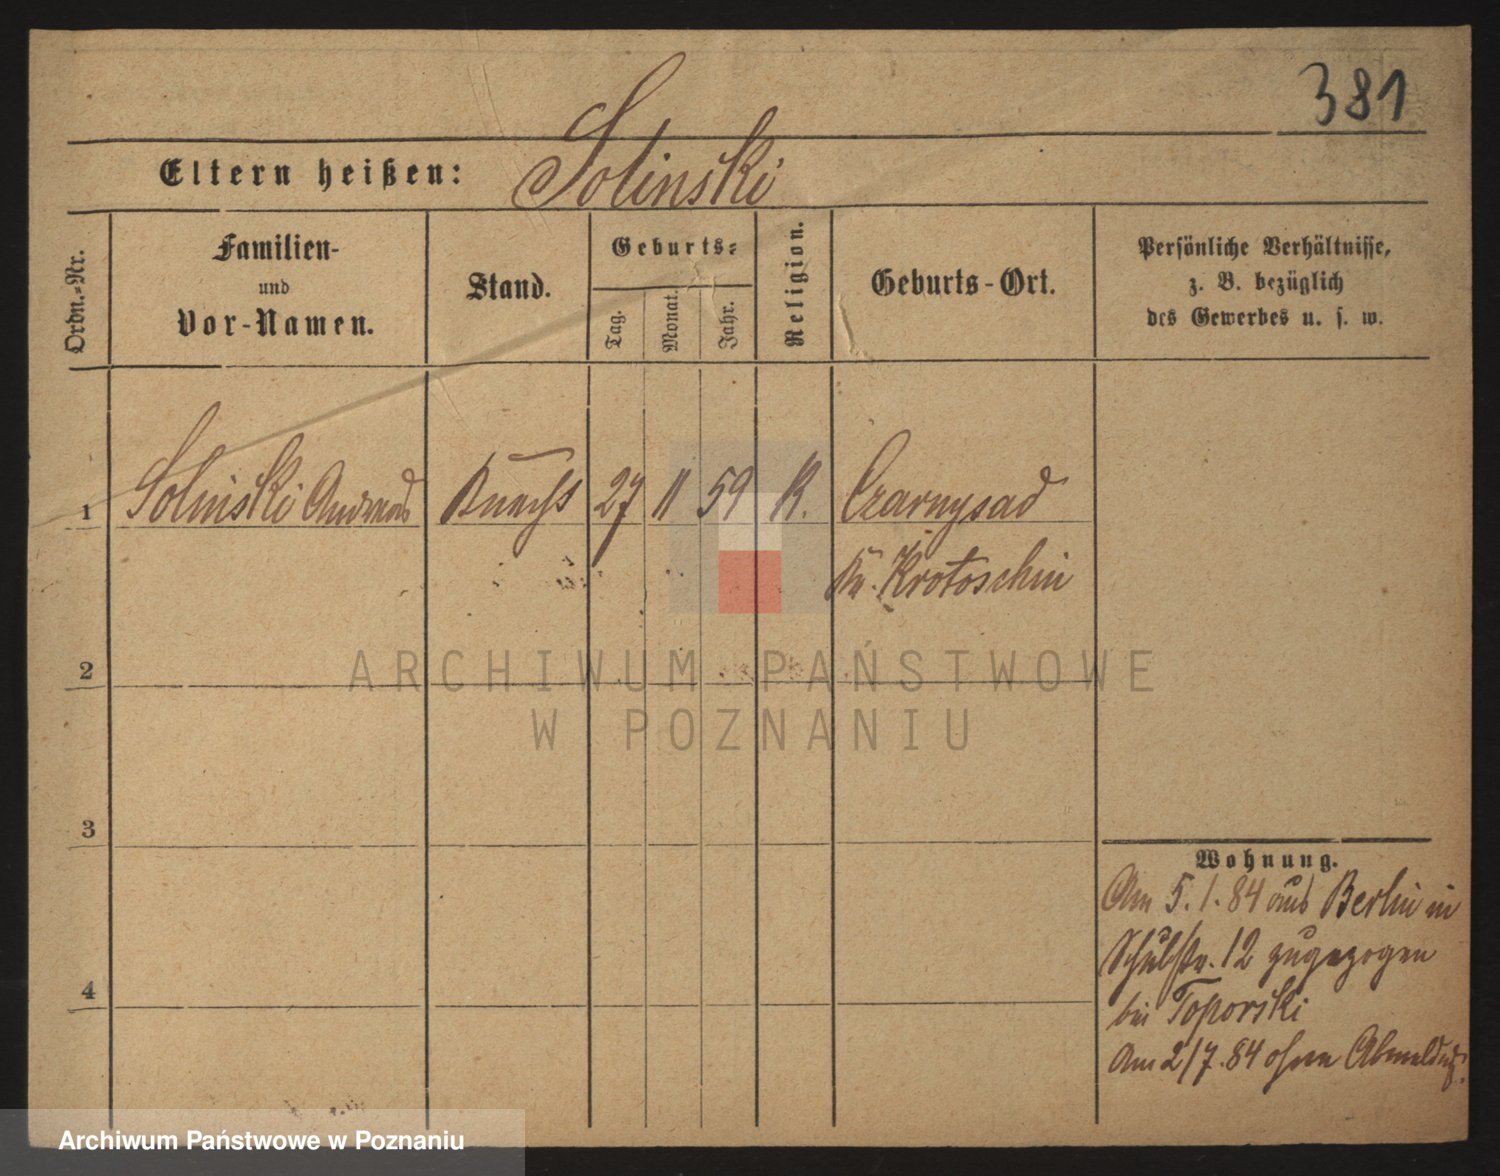 381
Eltern heißen: Solinski
Ordn.-Nr.
Familien-
und
Vor-Namen.
Stand.
Geburts-
Tag.
Monat.
Jahr.
Religion.
Geburts-Ort.
Persönliche Verhältnisse,
z. B. bezüglich
des Gewerbes u. s. w.
1 Solinski Andreas Knecht 27 11 59 K. Czarnysad
Kr. Krotoschin
2
ARCHIWUM PAŃSTWOWE
W POZNANIU
3
Wohnung.
Am 5.1.84 aus Berlin in
Schulstr. 12 zugezogen
4
bei Toporski
Am 2/7.84 ohne Abmeldung.
Archiwum Państwowe w Poznaniu